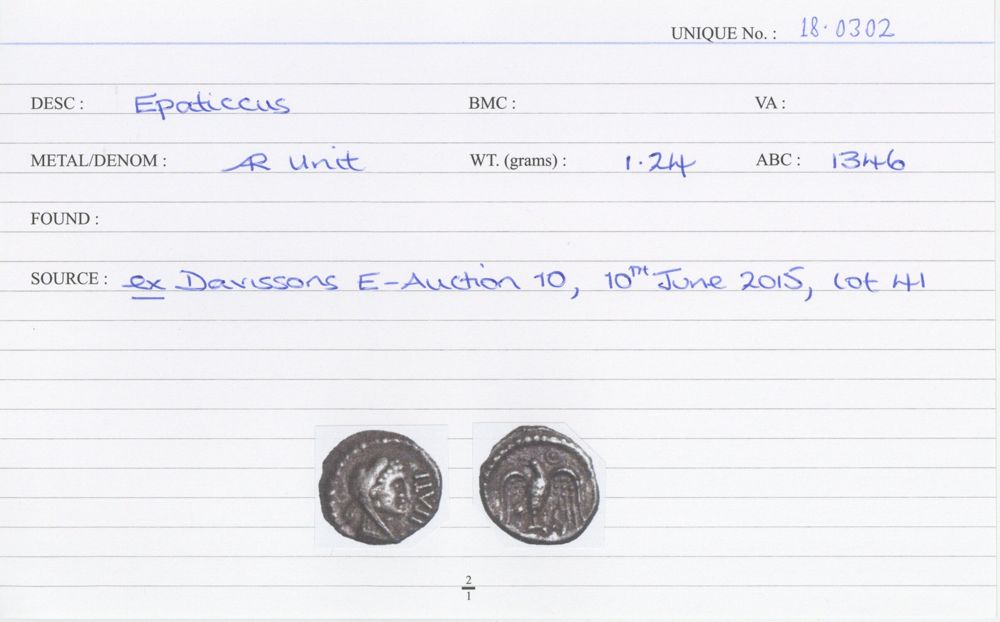 UNIQUE No. : 18.0302
DESC : Epaticcus BMC : VA :
METAL/DENOM : AR Unit WT. (grams) : 1.24 ABC : 1346
FOUND :
SOURCE : ex Davissons E-Auction 10, 10TH June 2015, lot 41
2
1